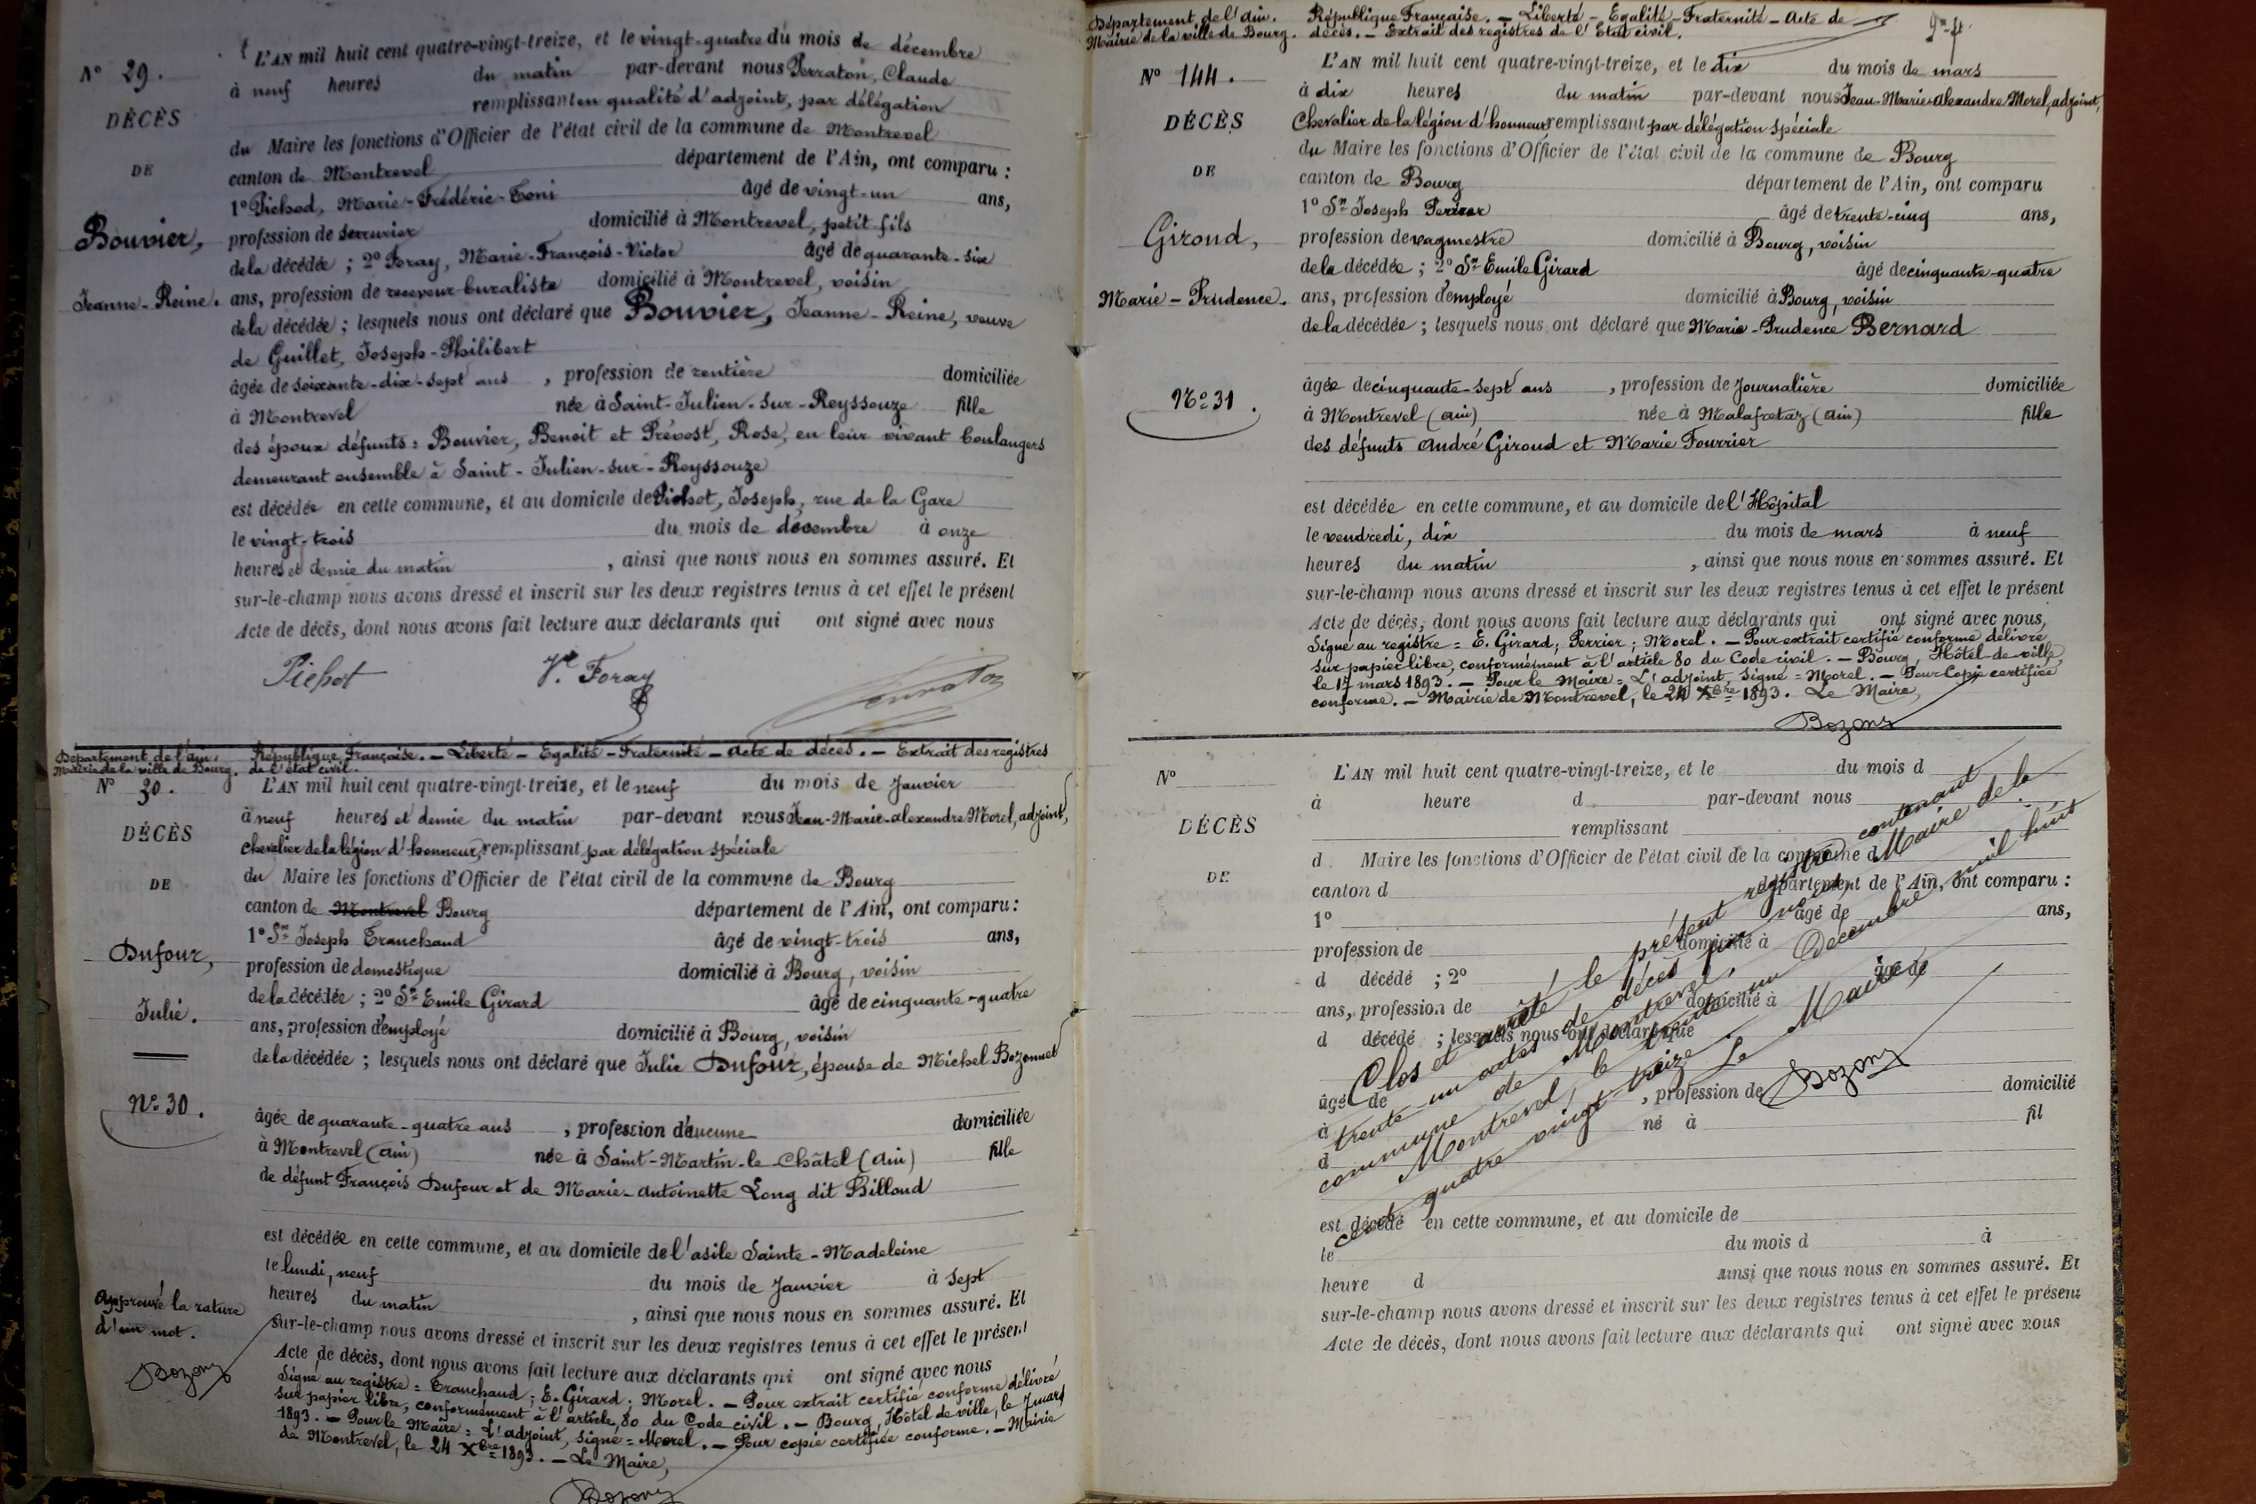 L'AN mil huit cent quatre-vingt-treize, et le vingt-quatre du mois de décembre
N° 29.
à neuf heures du matin par-devant nous Perraton, Claude
remplissant en qualité d'adjoint, par délégation
DÉCÈS
du Maire les fonctions d'Officier de l'état civil de la commune de Montrevel
DE
canton de Montrevel département de l'Ain, ont comparu :
1° Pichod, Marie-Frédéric-Toni âgé de vingt-un ans,
Bouvier,
profession de serrurier domicilié à Montrevel, petit-fils
de la décédée ; 2° Foray, Marie-François-Victor âgé de quarante-six
Jeanne-Reine.
ans, profession de receveur-buraliste domicilié à Montrevel, voisin
de la décédée ; lesquels nous ont déclaré que Bouvier, Jeanne-Reine, veuve
de Guillet, Joseph-Philibert
âgée de soixante-dix-sept ans , profession de rentière domiciliée
à Montrevel née à Saint-Julien-sur-Reyssouze fille
des époux défunts : Bouvier, Benoit et Prévost, Rose, en leur vivant boulangers
demeurant ensemble à Saint-Julien-sur-Reyssouze
est décédée en cette commune, et au domicile de Pichot, Joseph, rue de la Gare
le vingt-trois du mois de décembre à onze
heures et demie du matin , ainsi que nous nous en sommes assuré. Et
sur-le-champ nous avons dressé et inscrit sur les deux registres tenus à cet effet le présent
Acte de décès, dont nous avons fait lecture aux déclarants qui ont signé avec nous
Pichot V. Foray Perraton
Département de l'ain. République Française. — Liberté — Egalité — Fraternité — acte de décès. — Extrait des registres
Mairie de la ville de Bourg. de l'état civil.
N° 30.
L'AN mil huit cent quatre-vingt-treize, et le neuf du mois de Janvier
à neuf heures et demie du matin par-devant nous Jean-Marie-alexandre Morel, adjoint,
DÉCÈS
chevalier de la légion d'honneur, remplissant par délégation spéciale
du Maire les fonctions d'Officier de l'état civil de la commune de Bourg
DE
canton de Montrevel Bourg département de l'Ain, ont comparu :
1° Sr Joseph Tranchand âgé de vingt-trois ans,
Dufour,
profession de domestique domicilié à Bourg, voisin
de la décédée ; 2° Sr Emile Girard âgé de cinquante-quatre
Julie.
ans, profession d'employé domicilié à Bourg, voisin
de la décédée ; lesquels nous ont déclaré que Julie Dufour, épouse de Michel Bozonnet
N° 30.
âgée de quarante-quatre ans , profession d'aucune domiciliée
à Montrevel (ain) née à Saint-Martin-le-Châtel (ain) fille
de défunt François Dufour et de Marie-antoinette Long dit Billoud
est décédée en cette commune, et au domicile de l'asile Sainte-Madeleine
le lundi, neuf du mois de Janvier à sept
heures du matin , ainsi que nous nous en sommes assuré. Et
approuvé la rature
d'un mot.
Bozony
sur-le-champ nous avons dressé et inscrit sur les deux registres tenus à cet effet le présent
Acte de décès, dont nous avons fait lecture aux déclarants qui ont signé avec nous
Signé au registre = Tranchand ; E. Girard ; Morel. — Pour extrait certifié conforme délivré
sur papier libre, conformément à l'article 80 du Code civil. — Bourg, Hôtel de ville, le 7 mars
1893. — Pour le Maire = L'adjoint, Signé = Morel. — Pour copie certifiée conforme. — Mairie
de Montrevel, le 24 Xbre 1893. — Le Maire,
Bozony
Département de l'ain. République Française. — Liberté — Egalité — Fraternité — Acte de
Mairie de la ville de Bourg. décès. — Extrait des registres de l'Etat civil.
L'AN mil huit cent quatre-vingt-treize, et le dix du mois de mars
N° 144.
à dix heures du matin par-devant nous Jean-Marie-alexandre Morel, adjoint,
DÉCÈS
Chevalier de la légion d'honneur, remplissant par délégation spéciale
du Maire les fonctions d'Officier de l'état civil de la commune de Bourg
DE
canton de Bourg département de l'Ain, ont comparu
1° Sr Joseph Perrier âgé de trente-cinq ans,
Giroud,
profession de vaguemestre domicilié à Bourg, voisin
de la décédée ; 2° Sr Emile Girard âgé de cinquante-quatre
Marie-Prudence.
ans, profession d'employé domicilié à Bourg, voisin
de la décédée ; lesquels nous ont déclaré que Marie-Prudence Bernard
N° 31.
âgée de cinquante-sept ans , profession de Journalière domiciliée
à Montrevel (ain) née à Malafretaz (ain) fille
des défunts André Giroud et Marie Fourrier
est décédée en cette commune, et au domicile de l'Hôpital
le vendredi, dix du mois de mars à neuf
heures du matin , ainsi que nous nous en sommes assuré. Et
sur-le-champ nous avons dressé et inscrit sur les deux registres tenus à cet effet le présent
Acte de décès, dont nous avons fait lecture aux déclarants qui ont signé avec nous,
Signé au registre = E. Girard ; Perrier ; Morel. — Pour extrait certifié conforme délivré
sur papier libre, conformément à l'article 80 du Code civil. — Bourg, Hôtel-de-ville,
le 17 mars 1893. — Pour le Maire = L'adjoint, signé = Morel. — Pour Copie certifiée
conforme. — Mairie de Montrevel, le 24 Xbre 1893. Le Maire,
Bozony
N°
L'AN mil huit cent quatre-vingt-treize, et le du mois d
à heure d par-devant nous
remplissant
DÉCÈS
d Maire les fonctions d'Officier de l'état civil de la commune d
DE
canton d département de l'Ain, ont comparu :
1° âgé de ans,
profession de domicilié à
d décédé ; 2° âgé de
ans, profession de domicilié à
d décédé ; lesquels nous ont déclaré que
âgé de , profession de domicilié
à né à fil
d
est décédé en cette commune, et au domicile de
le du mois d à
heure d ainsi que nous nous en sommes assuré. Et
sur-le-champ nous avons dressé et inscrit sur les deux registres tenus à cet effet le présent
Acte de décès, dont nous avons fait lecture aux déclarants qui ont signé avec nous
Clos et arrêté le présent registre contenant
trente un actes de décès par nous, Maire de la
commune de Montrevel.
Montrevel, le trente un Décembre mil huit
cent quatre vingt treize. Le Maire,
Bozony